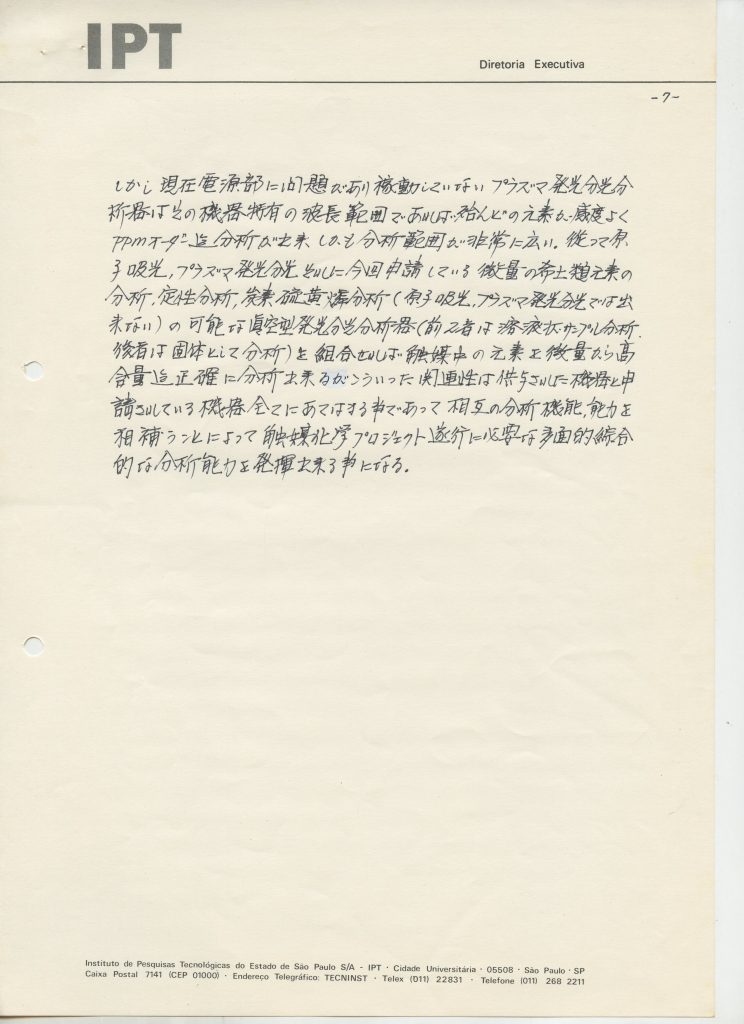 IPT
Diretoria Executiva
-7-
しかし現在電源部に問題があり稼動していないプラズマ発光分光分
析器はその機器特有の波長範囲であれば殆んどの元素が感度よく
ppmオーダー迄分析が出来しかも分析範囲が非常に広い。従って原
子吸光,プラズマ発光分光それに今回申請している微量の希土類元素の
分析,定性分析,炭素硫黄燐分析(原子吸光,プラズマ発光分光では出
来ない)の可能な真空型発光分光分析器(前2者は溶液状サンプル分析.
後者は固体として分析)を組合せれば触媒中の元素を微量から高
含量迄正確に分析出来るがこういった関連性は供与された機器と申
請されている機器全てにあてはまる事であって相互の分析機能,能力を
相補うことによって触媒化学プロジェクト遂行に必要な多面的綜合
的な分析能力を発揮出来る事になる.
Instituto de Pesquisas Tecnológicas do Estado de São Paulo S/A - IPT · Cidade Universitária · 05508 · São Paulo · SP
Caixa Postal 7141 (CEP 01000) · Endereço Telegráfico: TECNINST · Telex (011) 22831 · Telefone (011) 268 2211